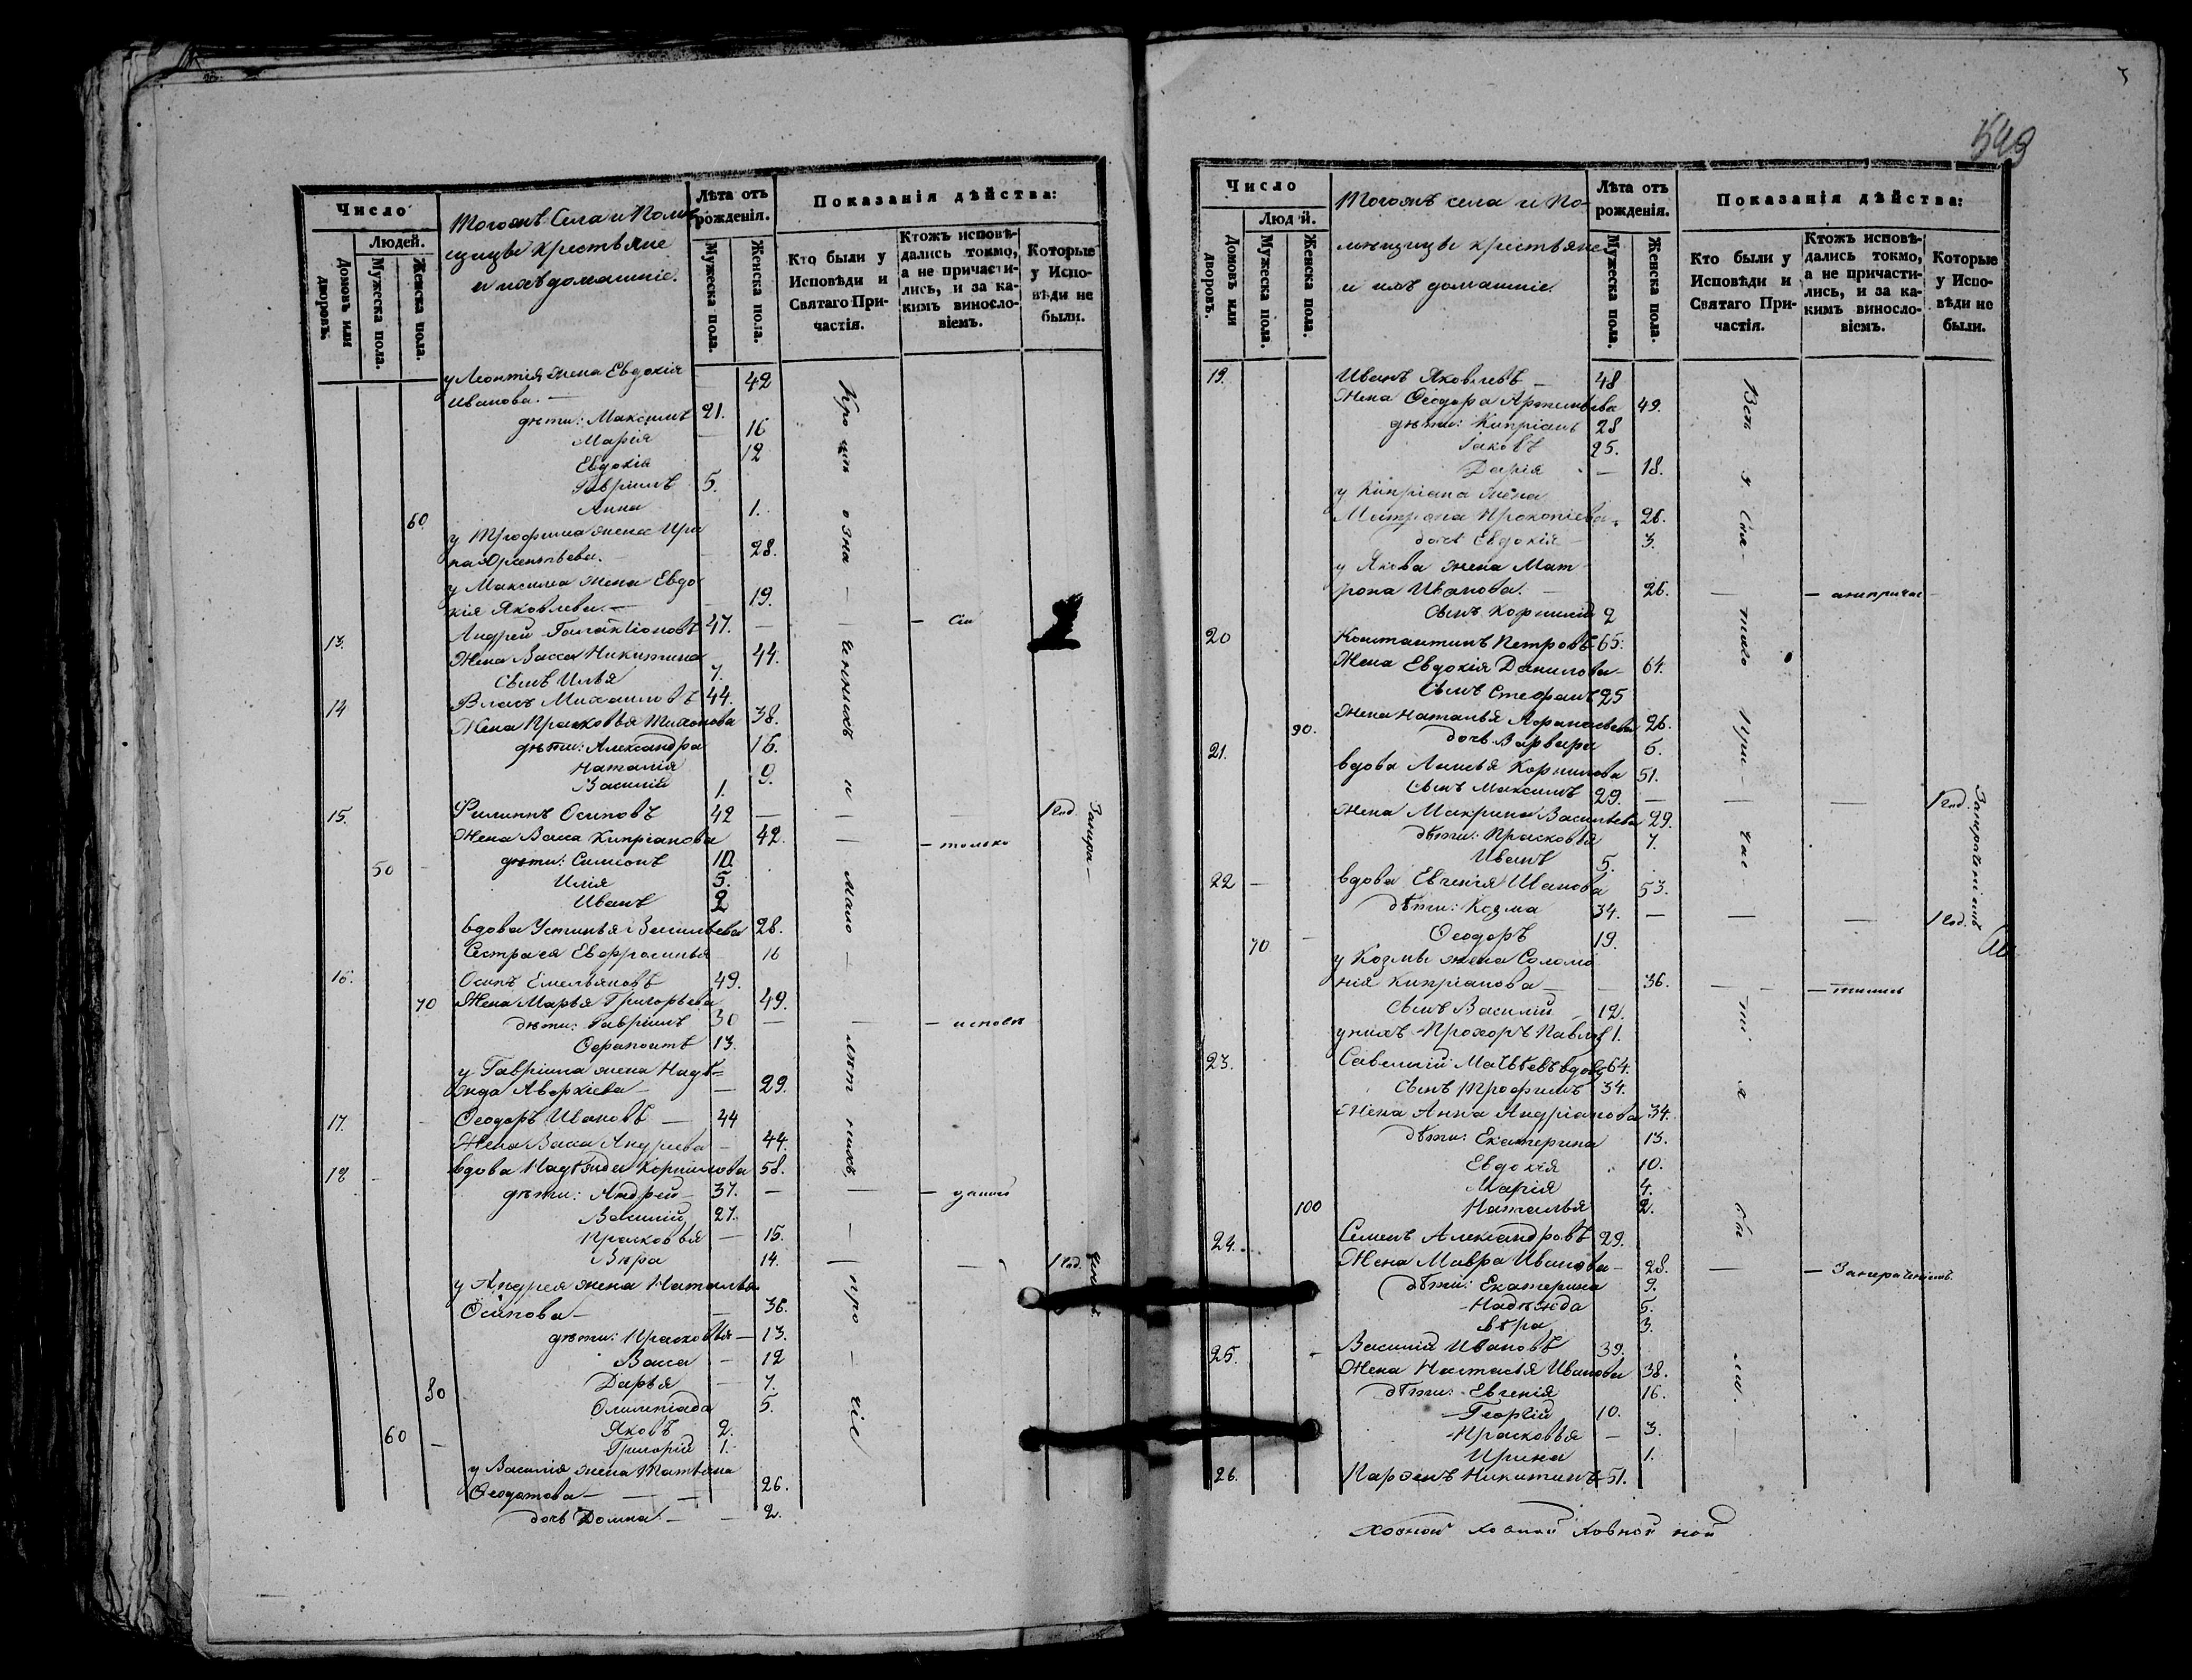 Число
Людей.
Домовъ или дворовъ.
Мужеска пола.
Женска пола.
Тогожъ Села и Поме
щицы крестьяне
и ихъ домашніе.
Лѣта отъ рожденія.
Мужеска пола.
Женска пола.
Показанія дѣйства:
Кто были у Исповѣди и Святаго Причастія.
Ктожъ исповѣдались токмо, а не причастились, и за какимъ винословіемъ.
Которые у Исповѣди не были.
у Леонтія жена Евдокія 42
Иванова. —
дѣти: Максимъ 21.
Марія — 16
Евдокія 12
Гавріилъ 5.
60. Анна 1.
у Трофима жена Ири
на Арсентьева. — 28.
у Максима жена Евдо
кія Яковлева. — 19.
13. Андрей Галактіоновъ 47. — — Сіи
Жена Васса Никитина 44.
Сынъ Илья 7.
14 Власъ Михаиловъ 44.
Жена Прасковья Тихонова 38.
дѣти: Александра 16.
Наталія 9.
Василій 1.
15. Филиппъ Осиповъ 42 — — — 1 год.
Жена Васса Кипріанова 42. — — только
50 дѣти: Симеонъ 10.
Илія 5.
Иванъ 2
вдова Устинья Васильева 28.
Сестра ея Евфросинья 16
16. Осипъ Емельяновъ 49.
70 Жена Марья Григорьева 49.
дѣти: Гавріилъ 30 — — — исповѣ
Ферапонтъ 13.
у Гавріила жена Надѣ=
жда Аверкіева — — 29.
17. Ѳеодоръ Ивановъ — 44
Жена Васса Андреева — 44.
18 вдова Надежда Корнилова 58.
дѣти: Андрей 37. — — —
Василій 27.
Прасковья — 15.
Вѣра 14. — — 1 год.
у Андрея жена Наталья
Осипова — — 36.
дѣти: Прасковья — 13.
Васса — 12
80 Дарья — 7.
Олимпіада 5.
Яковъ 2.
60 Григорій 1.
у Василія жена Татьяна
Ѳеодотова — — — 26.
дочь Домна. — — 2.
Кро мѣ озна — ченныхъ и мало — лѣт нихъ, про — чіе
543
Число
Людей.
Домовъ или дворовъ.
Мужеска пола.
Женска пола.
Тогожъ села и По-
мѣщицы крестьяне
и ихъ домашніе.
Лѣта отъ рожденія.
Мужеска пола.
Женска пола.
Показанія дѣйства:
Кто были у Исповѣди и Святаго Причастія.
Ктожъ исповѣдались токмо, а не причастились, и за какимъ винословіемъ.
Которые у Исповѣди не были.
19. Иванъ Яковлевъ — 48
Жена Ѳеодора Артемьева 49.
дѣти: Кипріанъ 28
Іаковъ 25.
Дарія — 18.
у Кипріана жена
Матрона Прокопіева 26.
дочь Евдокія — 3.
у Якова жена Мат
рона Иванова. — 26. — — анепричас
Сынъ Корнилій 2
20 Константинъ Петровъ 65.
Жена Евдокія Данилова 64.
Сынъ Стефанъ 25
Жена Наталья Афанасьева 26.
90. дочь Варвара 6.
21. вдова Анисья Корнилова 51.
Сынъ Максимъ 29. — — — 1 год.
Жена Макрина Васильева 29.
дѣти: Прасковья 7.
Иванъ 5.
22 — вдова Евгенія Иванова 53.
дѣти: Козма 34. — — — 1 год.
70 Ѳеодоръ 19.
у Козмы жена Соломо
нія Кипріанова — — 36. — —
Сынъ Василій 12.
унихъ Прохоръ Павлов 1.
23. Савелій Матвѣевъ вдовъ 64.
Сынъ Трофимъ 34.
Жена Анна Андріанова 34.
дѣти: Екатерина 13.
Евдокія 10.
Марія 4.
100 Наталья 2.
24. Семенъ Александровъ 29.
Жена Мавра Иванова — 28. — —
дѣти: Екатерина 9.
Надежда 5.
Вѣра 3.
25. Василій Ивановъ 39.
Жена Настасья Иванова 38.
дѣти: Евгенія 16.
Георгій 10.
Прасковья — 3.
Ирина 1.
26. Парѳенъ Никитинъ 51.
Всѣ у Свя — таго При — час — тія бы — ли.